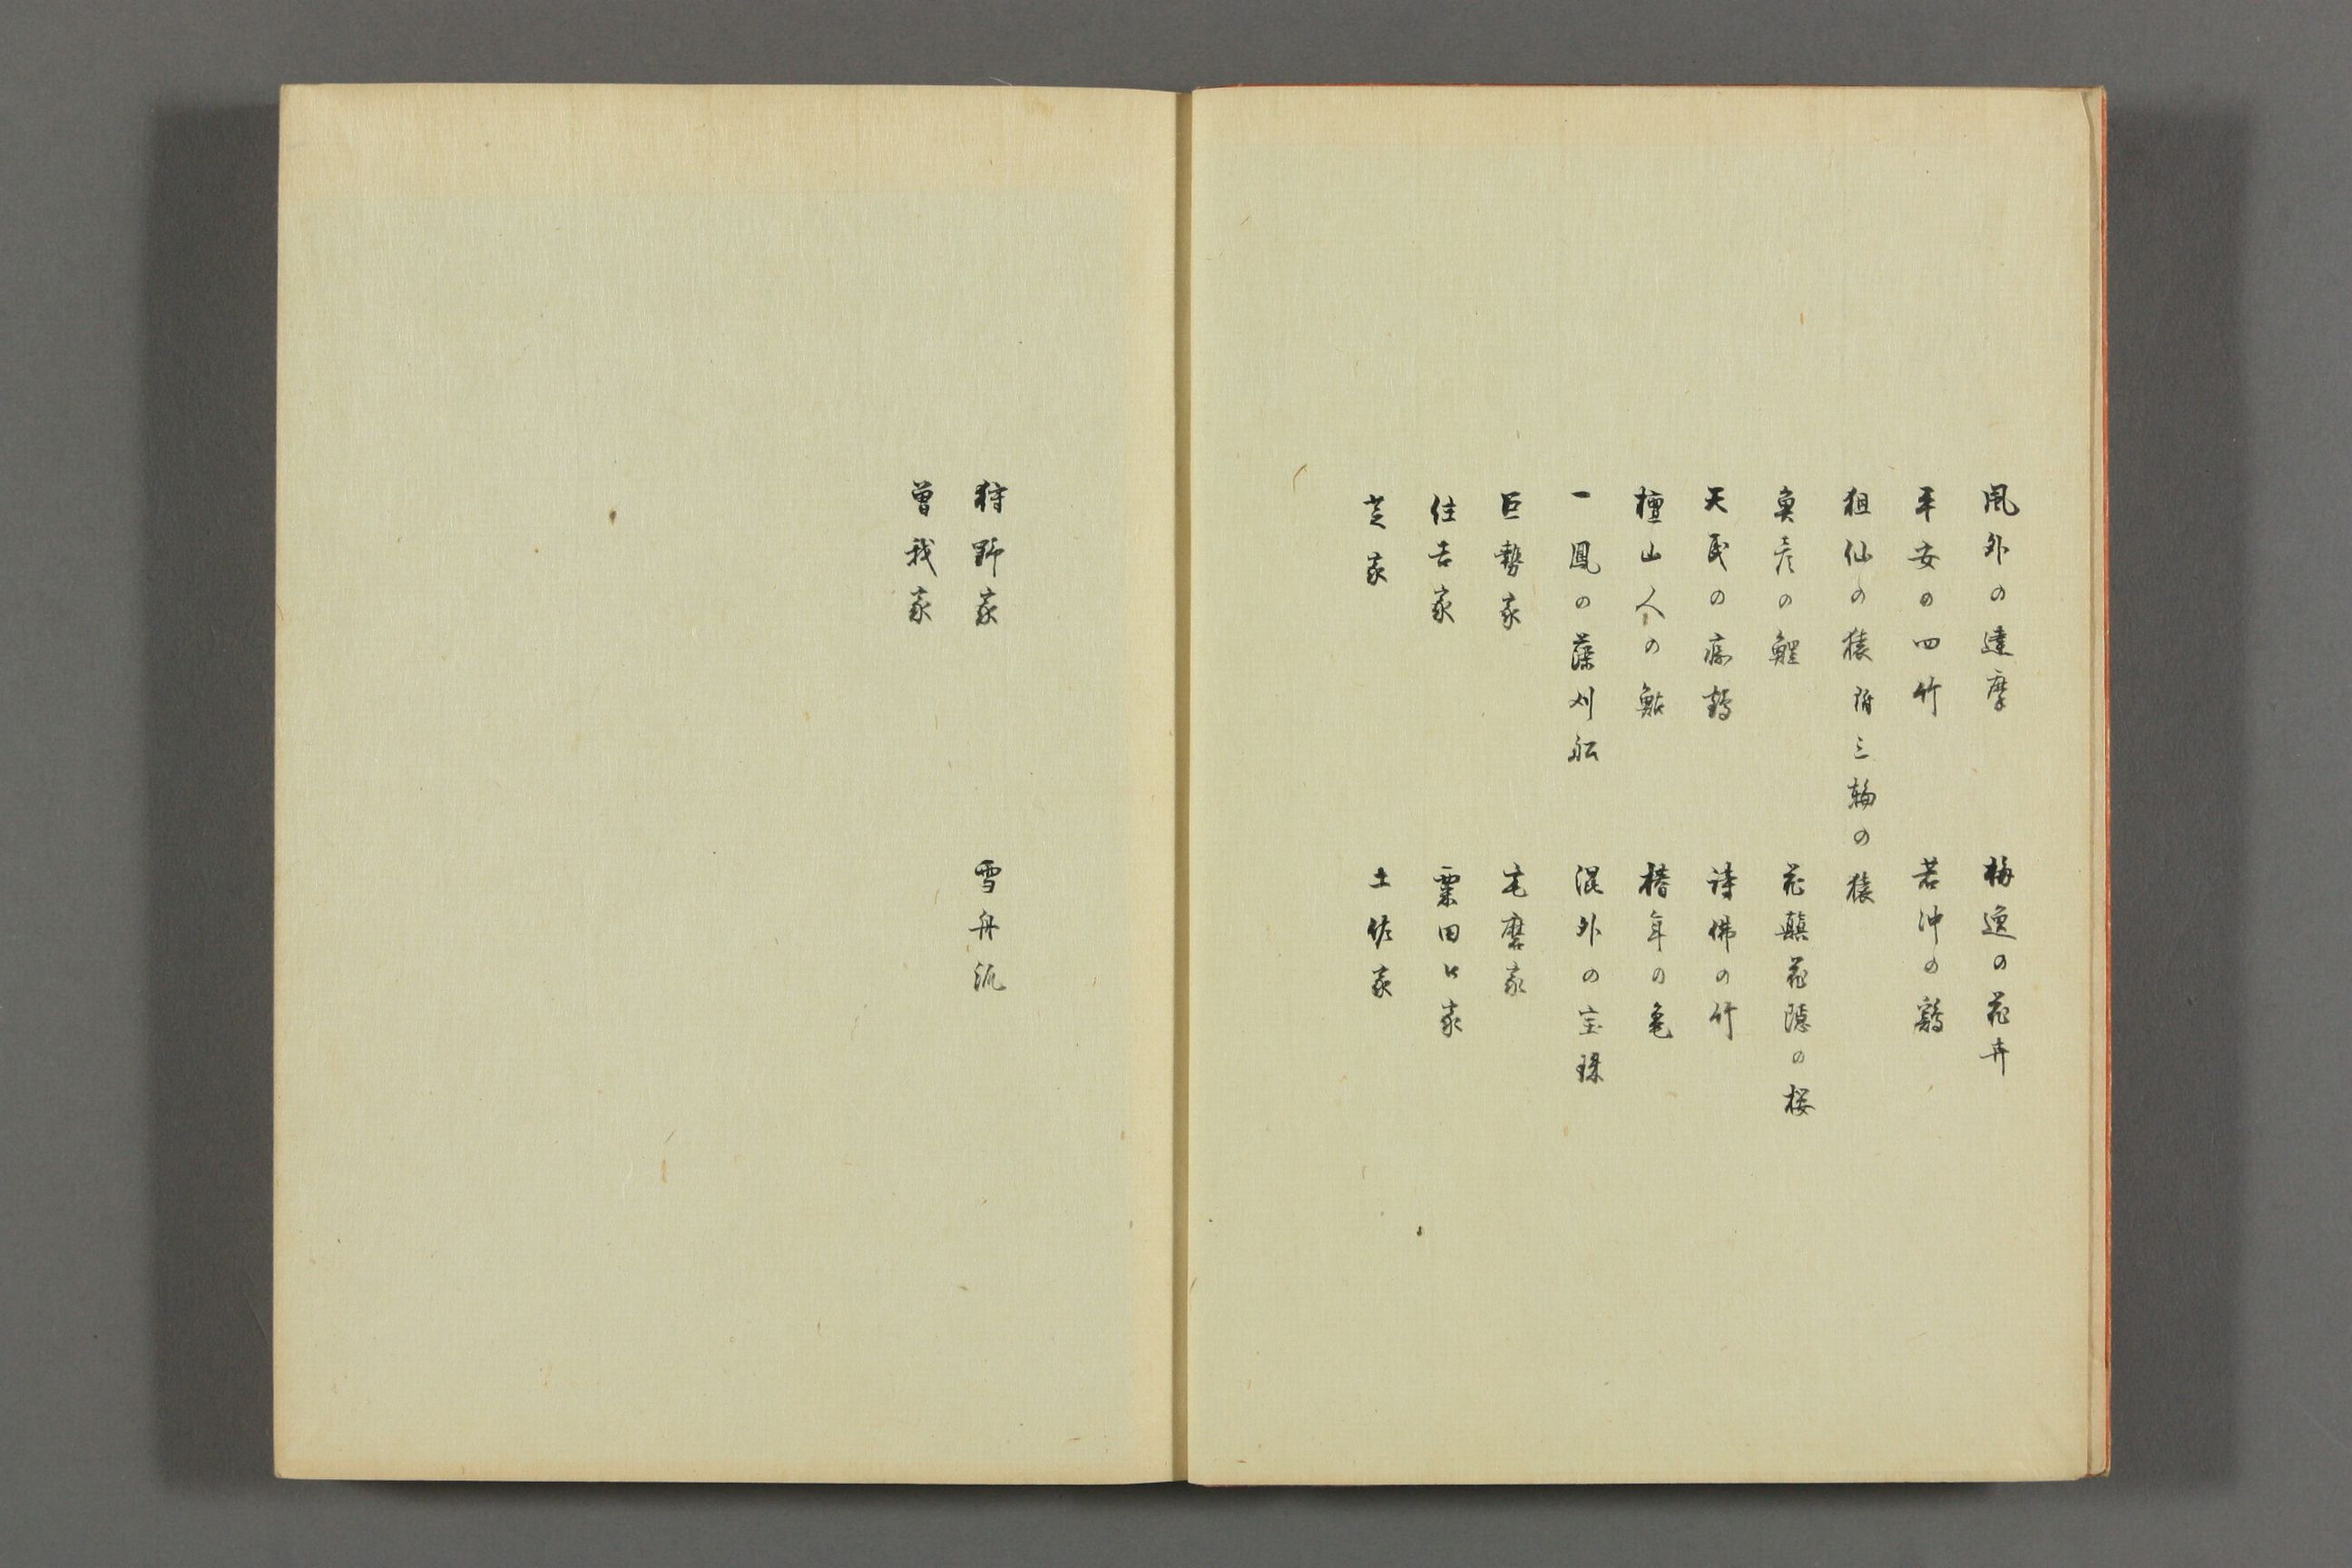 風外の達摩　梅逸の花卉
平安の四竹　若冲の鶏
狙仙の猿 附 三輪の猿
奥彦の鯉　花顛花隠の桜
天民の痩鶴　詩佛の竹
檀山人の鮎　椿年の亀
一鳳の藻刈舩　混外の宝珠
巨勢家　宅磨家
住吉家　粟田口家
芝家　土佐家
狩野家　雪舟流
曽我家